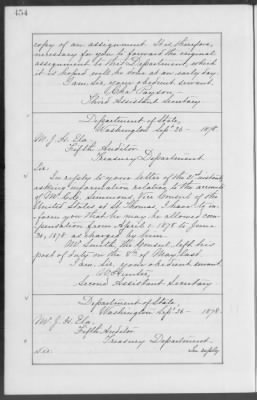 454
copy of an assignment. It is therefore,
necessary for you to forward the original
assignment to this Department, which
it is hoped will be done at an early day.
I am, Sir, your obedient servant,
Chas Payson,
Third Assistant Secretary
Department of State,
Washington Sept. 26 - 1878.
Mr J. H. Ela,
Fifth Auditor
Treasury Department.
Sir:
In reply to your letter of the 21st instant
asking information relating to the account
of Mr. C. C. Simmons, Vice Consul of the
United States at St Thomas, I have to in-
form you that he may be allowed com-
pensation from April 1. 1878 to June
30, 1878 as charged by him.
Mr. Smith, the Consul, left his
post of duty on the 8th of May last.
I am, Sir, your obedient servant,
W. Hunter,
Second Assistant Secretary
Department of State,
Washington Sept. 26 - 1878.
Mr J. H. Ela,
Fifth Auditor
Treasury Department
Sir:
In reply